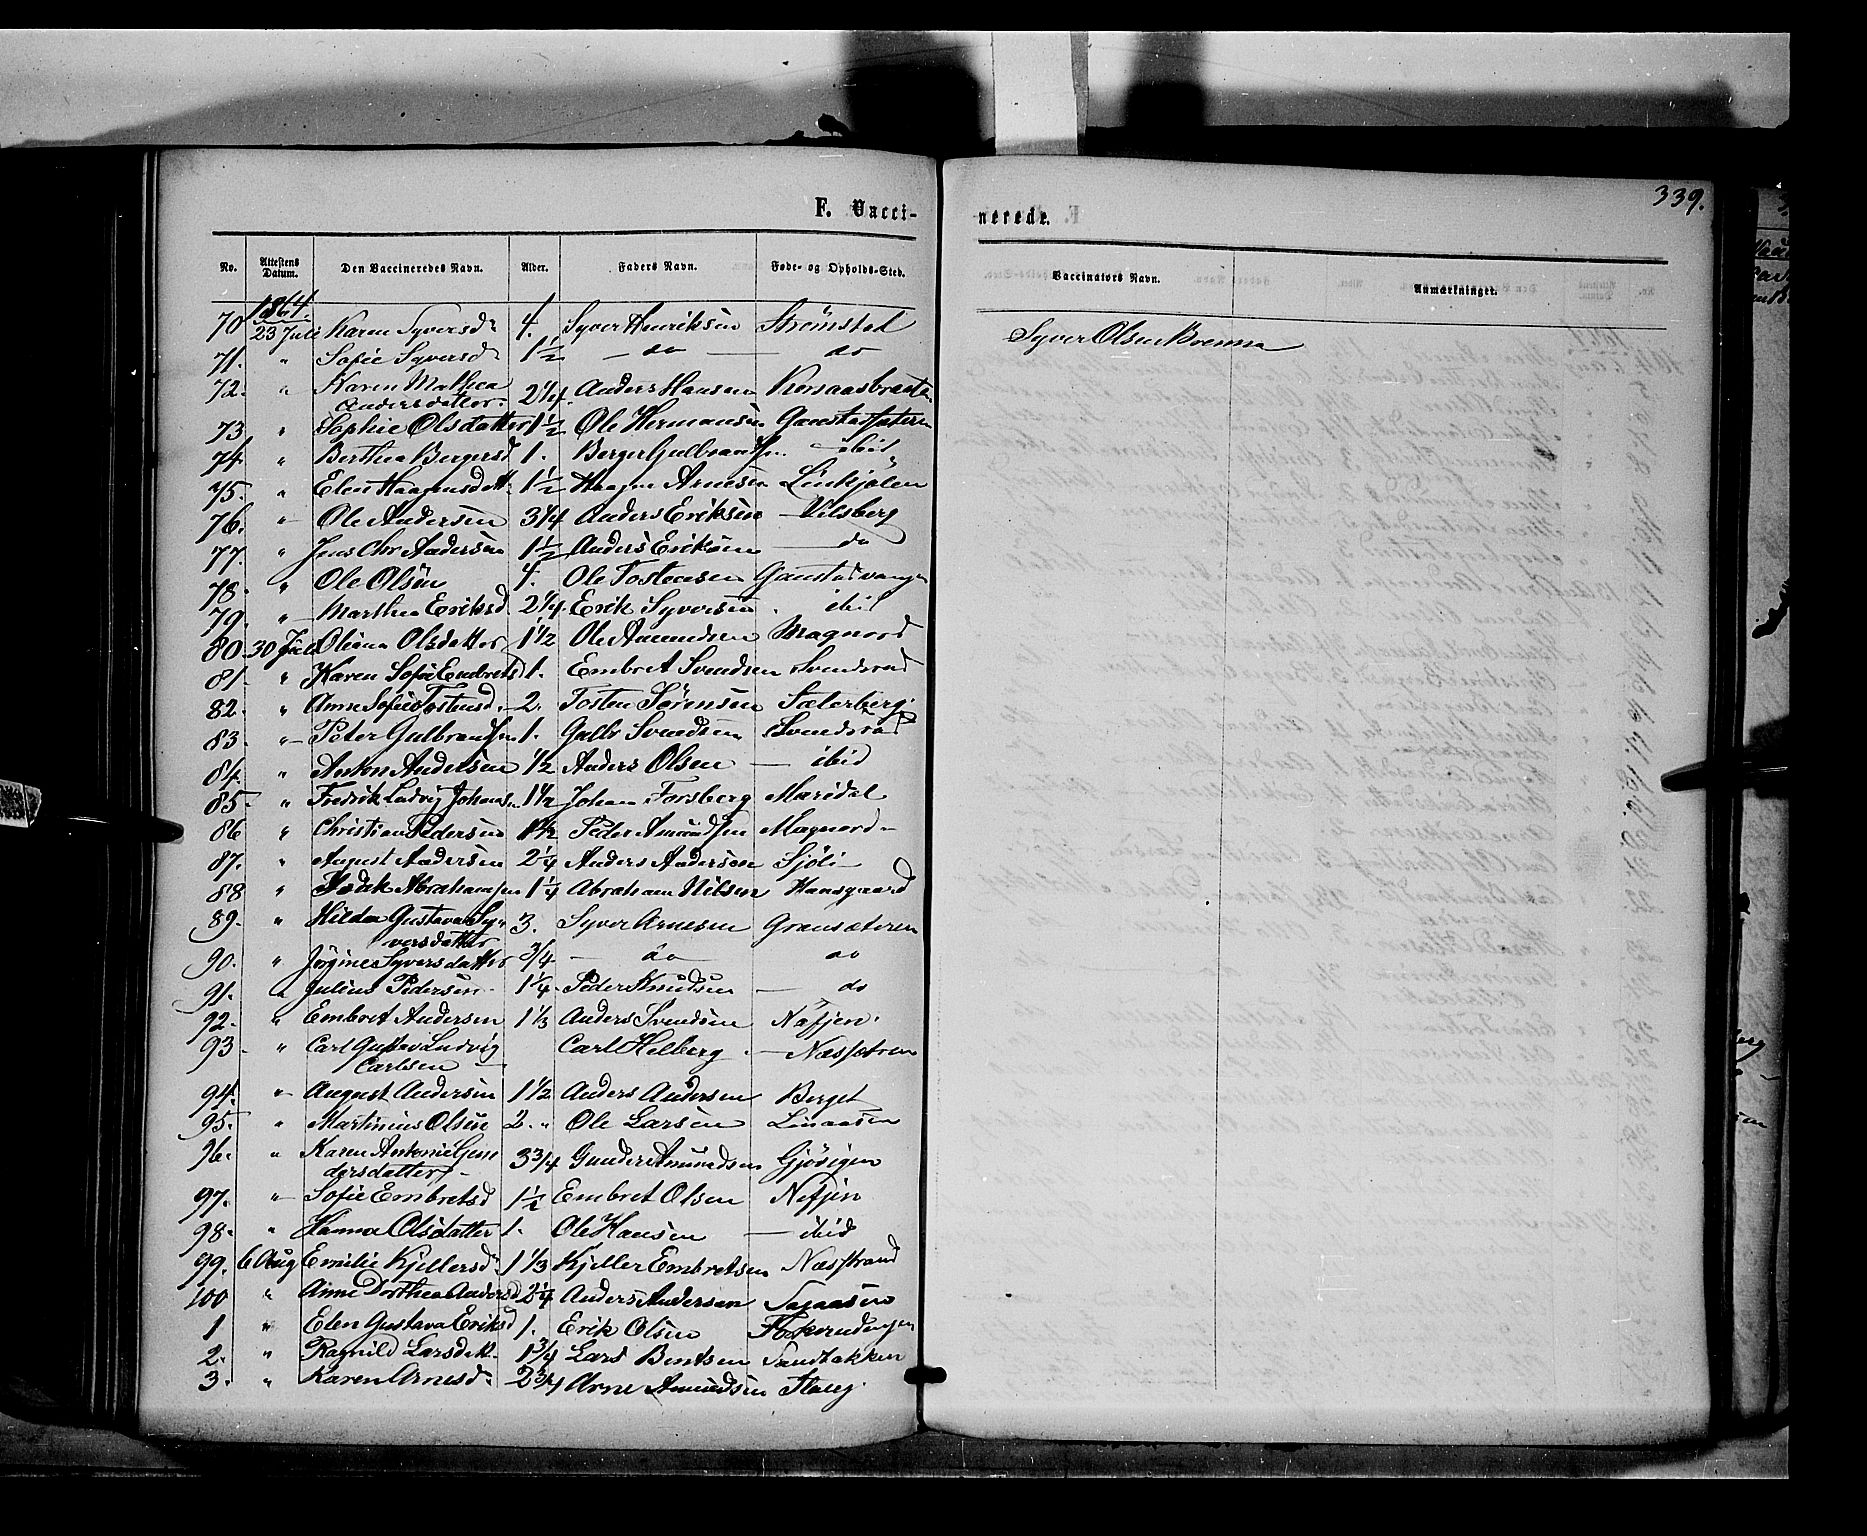 339.
F. Vaccinerede.
No. Attestens Datum. Den Vaccineredes Navn. Alder. Faders Navn. Føde- og Opholds-Sted. Vaccinators Navn. Anmærkninger.
1864.
70 23 Juli Karen Syversd. 4. Syver Henriksen Strømsted Syver Olsen Brenna
71. " Sofie Syversd 1 1/2 — do — do
72. " Karen Mathea Andersdatter. 2 1/4. Anders Hansen Korsaasbraate
73 " Sophie Olsdatter 1 1/2 Ole Hermansen Gaustadsæteren
74 " Berthea Bergersd 1. Berger Gulbrandsen — ibid
75. " Elen Haagensdatt. 1 1/2 Haagen Arnesen Linkjølen
76. " Ole Andersen 3 1/4 Anders Eriksen Vilsberg
77. " Jens Chr Andersen 1 1/2 Anders Eriksen — do
78. " Ole Olsen 4. Ole Tostensen Gaustadvangen
79. " Marthea Eriksd. 2 1/4. Erik Syversen . ibid
80. 30 Juli Oliana Olsdatter 1 1/2 Ole Amundsen Magnord
81. " Karen Sofie Embretsd 1. Embret Svendsen Svendsrud
82. " Anne Sofie Tostensd. 2. Tosten Sørensen Sæterberg.
83. " Peter Gulbrandsen 1. Gulbr Svendsen Svendsrud
84. " Anton Andersen 1/2 Anders Olsen — ibid
85. " Fredrik Ludvig Johansen 1 1/2 Johan Forsberg Maridal
86 " Christian Pedersen 1 1/2 Peder Amundsen Magnord
87. " August Andersen 2 1/4 Anders Andersen Sjøli
88 " Abrahamsen 1 1/4 Abraham Nilsen Hansgaard
89. " Hilda Gustava Syversdatter 3. Syver Arnesen Gransæteren
90. " Jørgine Syversdatter 3/4 — do — do
91. " Julius Pedersen 1 1/4. Peder Knudsen — do
92. " Embret Andersen 1 1/3 Anders Svendsen Næfjen.
93 " Carl Gustav Ludvig Carlsen Carl Helberg — Næsstran
94. " August Andersen 1 1/2 Anders Andersen Berget
95. " Martinius Olsen 2. " Ole Larsen Linaasen
96. " Karen Antonie Gundersdatter 3 3/4 Gunder Amundsen Gjøvigen
97. " Sofie Embretsd 1 1/2 Embret Olsen Næfjen
98. " Hanna Olsdatter 1. Ole Hansen — ibid
99. 6 Aug Emilie Kjellersd. 1 1/3 Kjeller Embretsen Næsstrand
100 " Anne Dorthea Andersd 2 1/4 Anders Andersen Sagaasen
1 " Elen Gustava Eriksd 1. Erik Olsen
2. " Ragnild Larsdatt. 1 3/4 Lars Bentsen Sandbakken
3. " Karen Arnesd. 2 3/4 Arne Amundsen